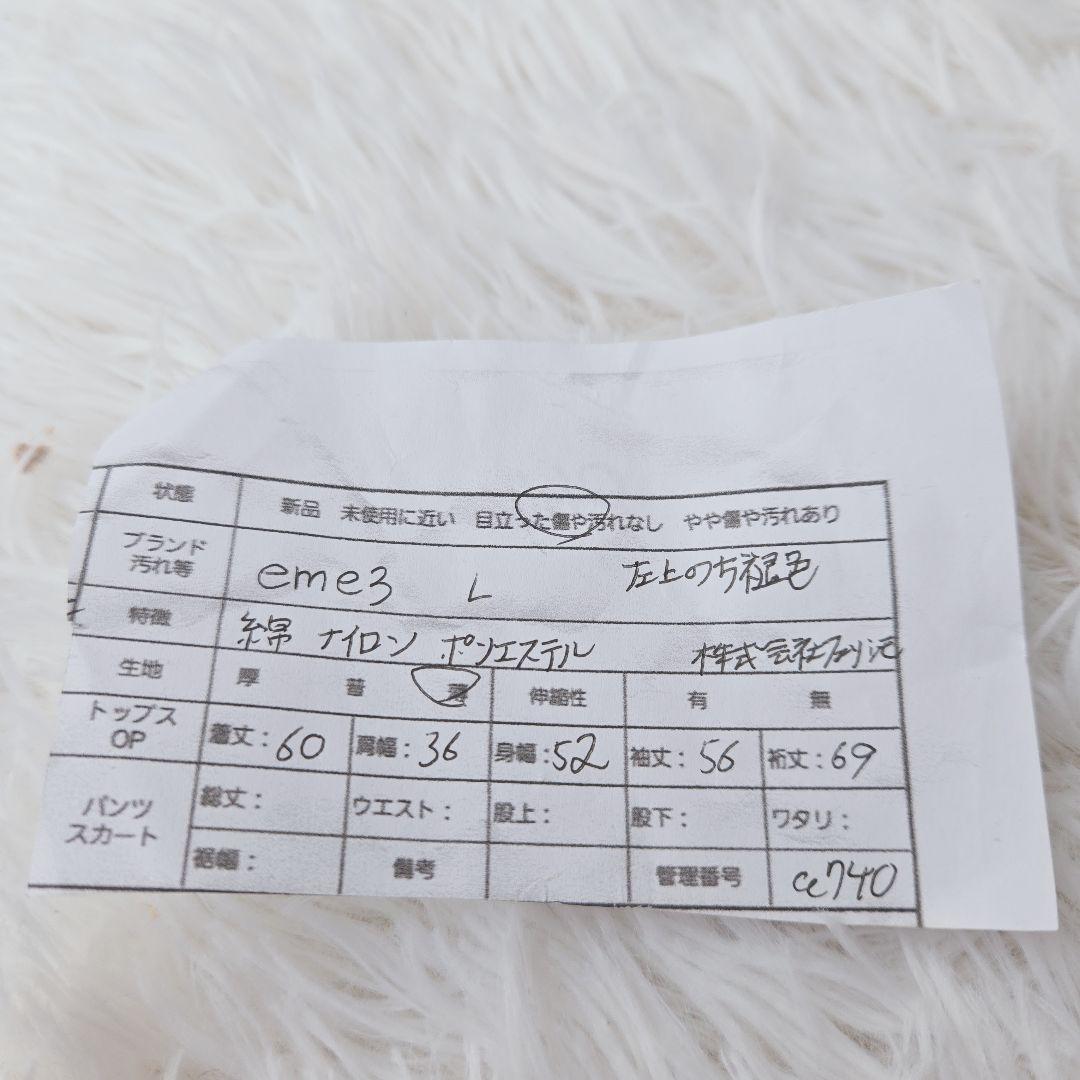 状態 新品 未使用に近い 目立った傷や汚れなし やや傷や汚れあり
ブランド 汚れ等 eme3 L 左上のち褪色
特徴 綿 ナイロン ポリエステル 株式会社
生地 厚 普 薄 伸縮性 有 無
トップス OP 着丈:60 肩幅:36 身幅:52 袖丈:56 裄丈:69
パンツ スカート 総丈: ウエスト: 股上: 股下: ワタリ:
裾幅: 備考 管理番号 a740